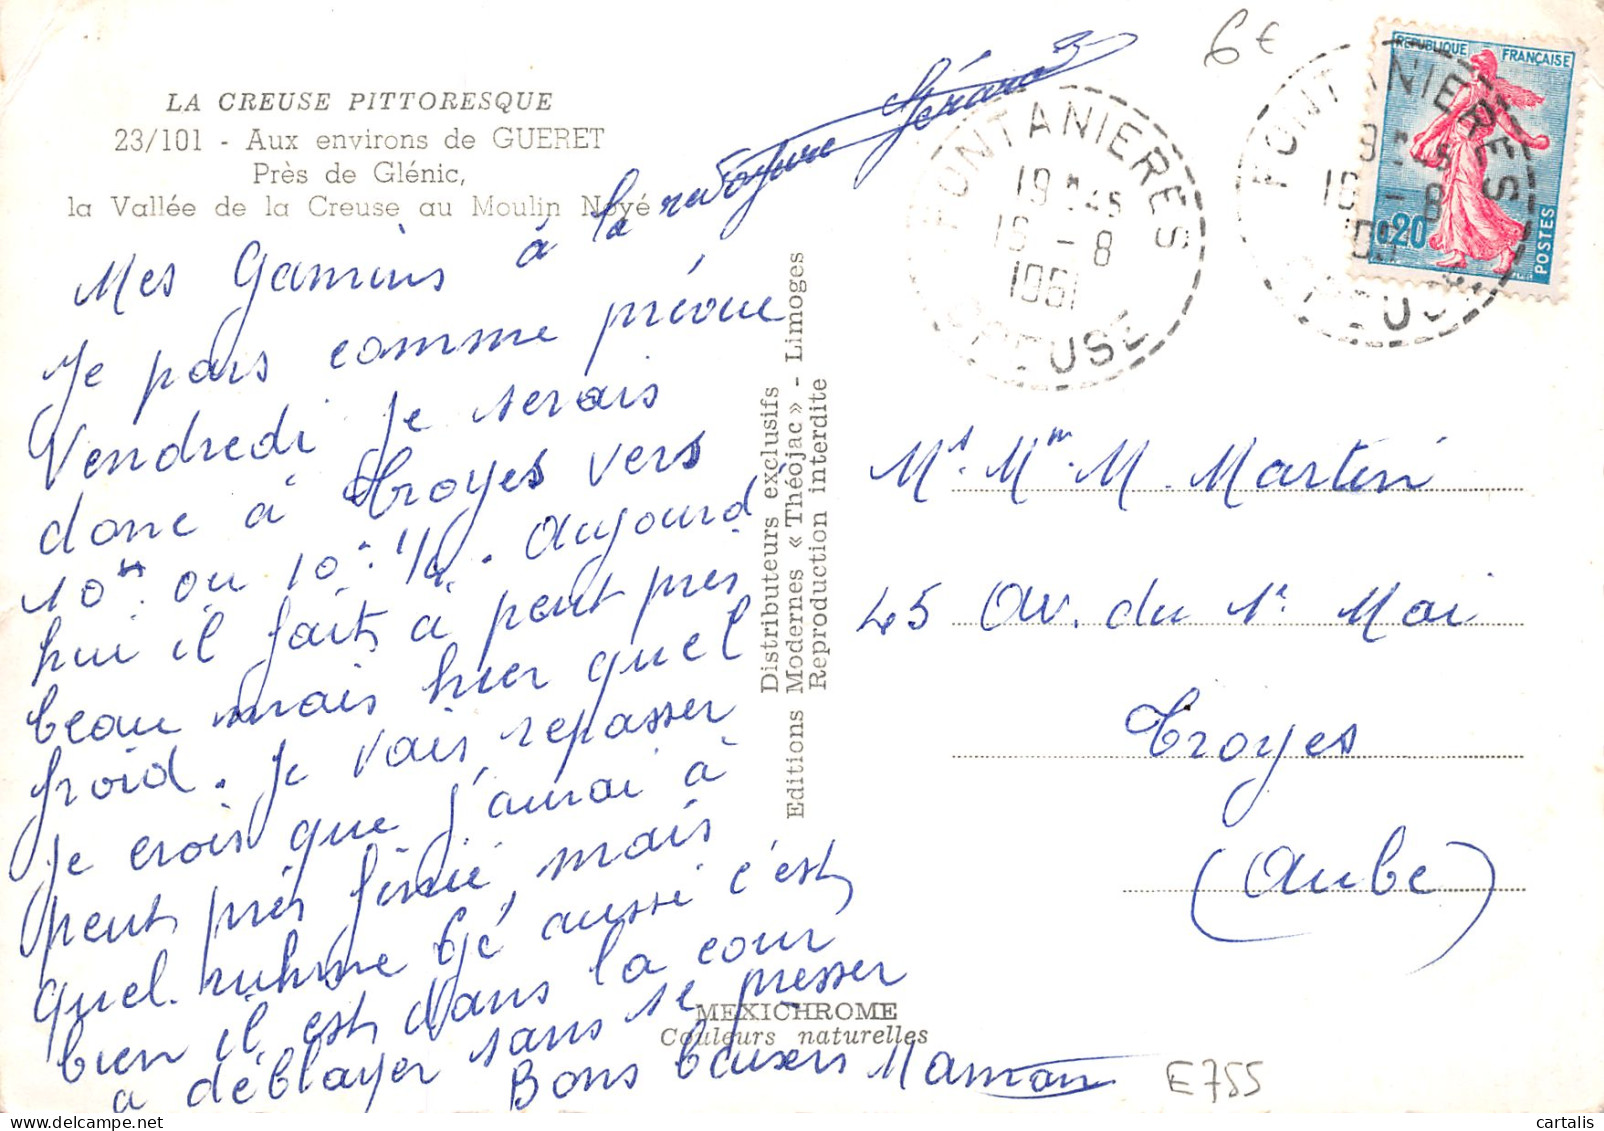 LA CREUSE PITTORESQUE
23/101 - Aux environs de GUERET
Près de Glénic,
la Vallée de la Creuse au Moulin Noyé
à la revoyure Gérard
Mes Gamins
Je pars comme prévue
Vendredi je serais
donc à Troyes vers
10h ou 10h 1/2. aujourd
hui il fait à peut près
beau mais hier quel
froid. Je vais repasser
je crois que j'aurai à
peut près finie, mais
quel ruhme Gé aussi c'est
bien il est dans la cour
a déblayer sans se presser
Bons baisers Maman
Editions Modernes « Théojac » - Limoges
Distributeurs exclusifs
Reproduction interdite
MEXICHROME
Couleurs naturelles
6€
REPUBLIQUE FRANÇAISE
0,20
POSTES
FONTANIERES
19H45
16 - 8
1961
CREUSE
FONTANIERES
19H45
16 - 8
CREUSE
Mr. Mm. M. Martin
45 av. du 1er Mai
Troyes
(Aube)
E755
cartalis
www.delcampe.net